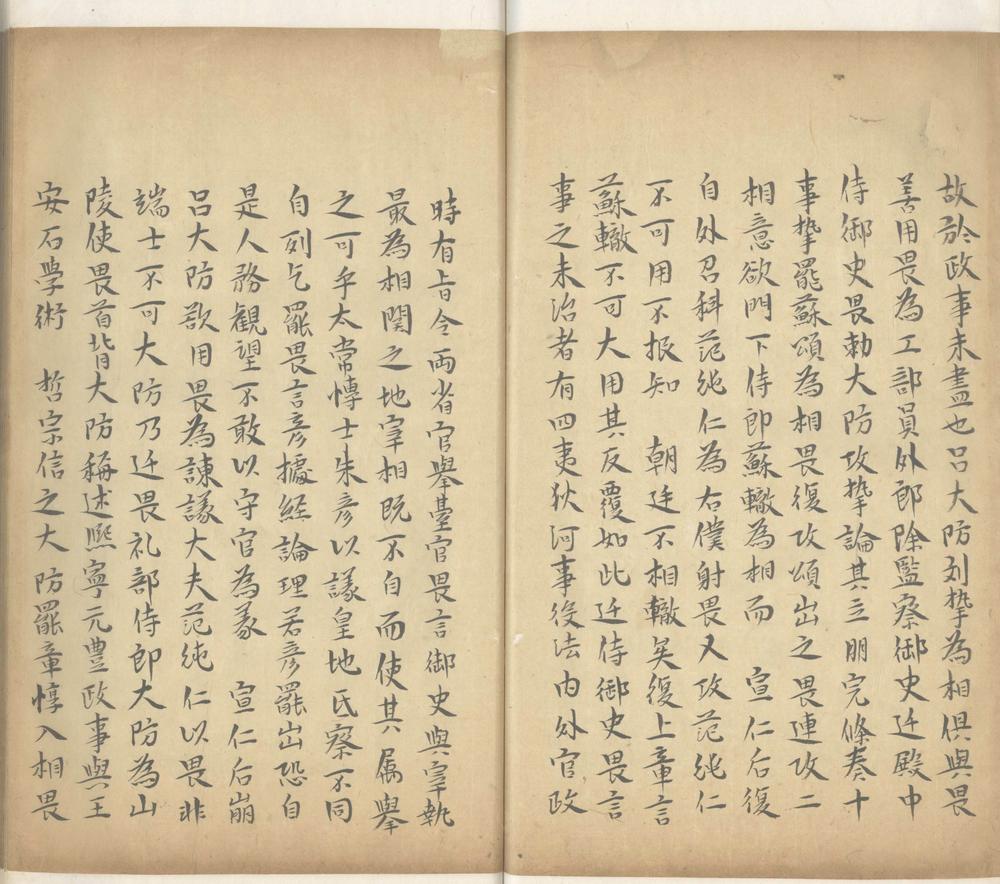 故於政事未盡也呂大防列摯為相俱與畏
善用畏為工部員外郎除監察御史迁殿中
侍御史畏勑大防攻摯論其立朋完條奏十
事摯罷蘇頌為相畏復攻頌出之畏連攻二
相意欲門下侍郎蘇轍為相而　宣仁后復
自外召科范純仁為右僕射畏又攻范純仁
不可用不报知　朝廷不相轍矣復上章言
蘇轍不可大用其反覆如此迁侍御史畏言
事之未治者有四夷狄河事役法内外官政
時有旨令兩省官舉臺官畏言御史與宰執
最為相関之地宰相既不自而使其属舉
之可乎太常慱士朱彦以議皇地氏察不同
自列乞罷畏言彦據経論理若彦罷出恐自
是人務観望不敢以守官為義　宣仁后崩
呂大防欲用畏為諫議大夫范純仁以畏非
端士不可大防乃迁畏礼部侍郎大防為山
陵使畏首背大防稱述熙寧元豐政事與王
安石學術　哲宗信之大防罷章惇入相畏